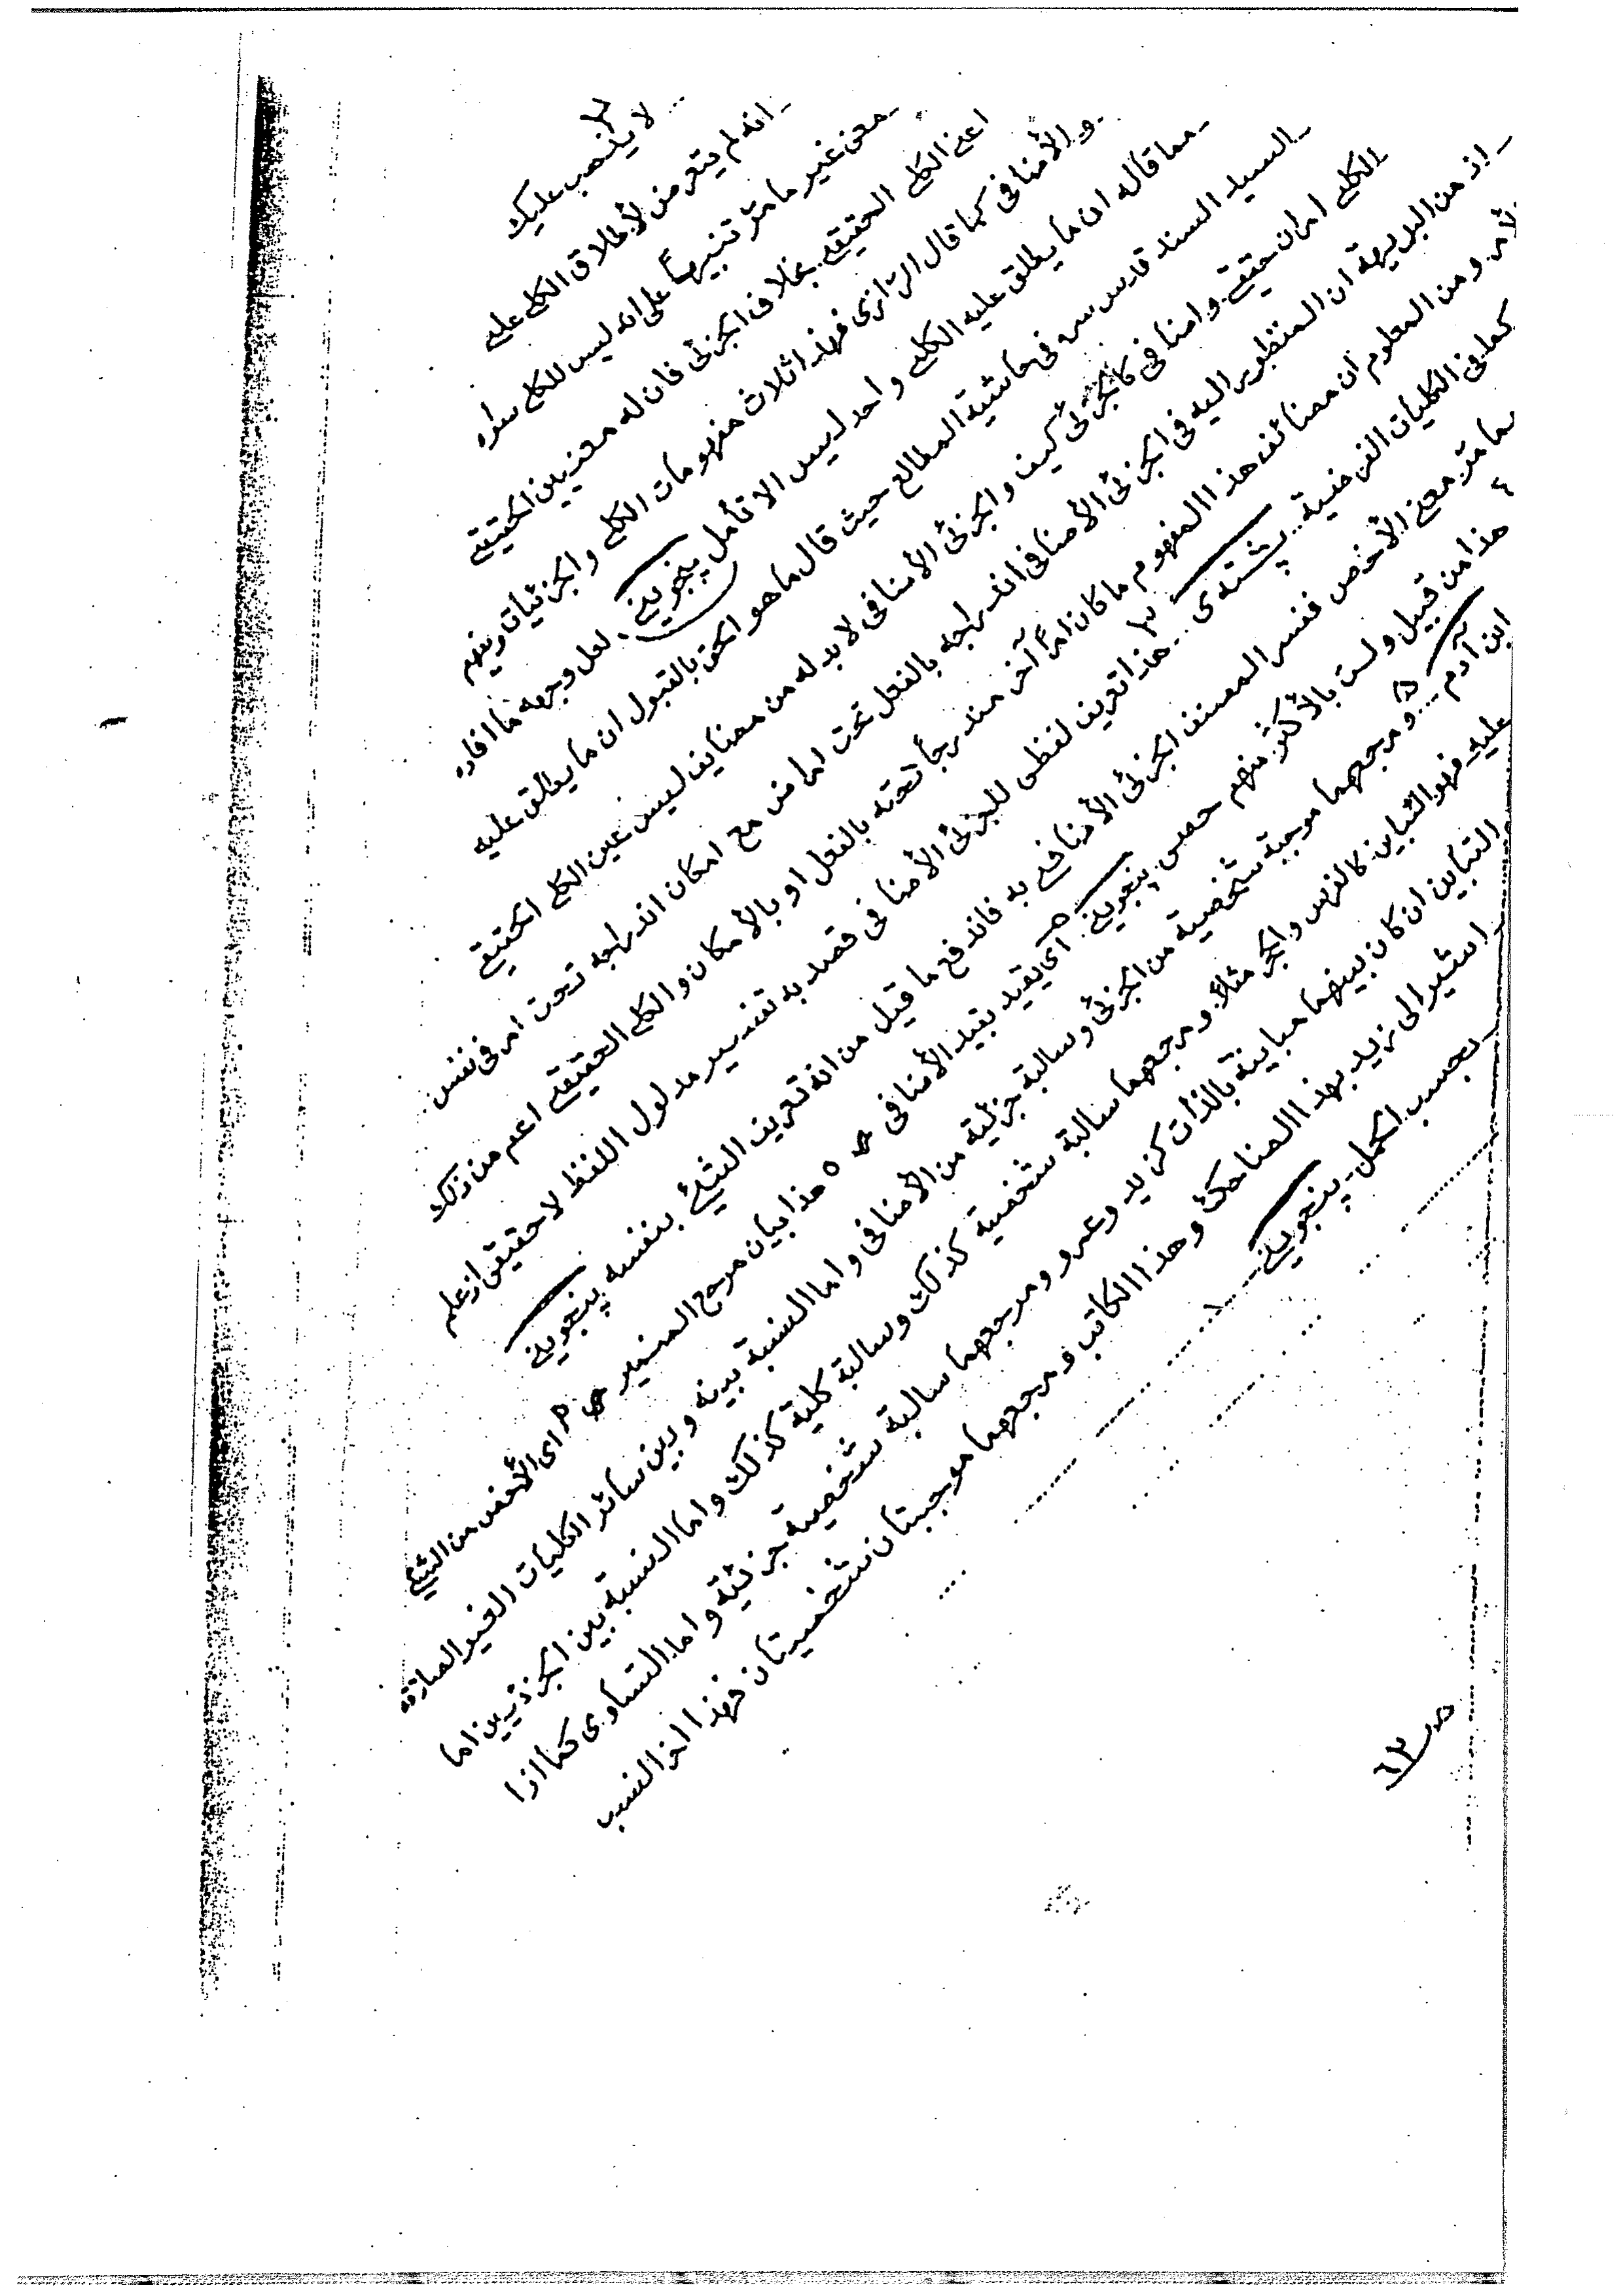 لا يذهب عليك
انه لم يتعرض لأطلاق الكلي على
معنى غير ما مرّ تنبيهاً على انه ليس للكلي سواه
اعني الكلي الحقيقي بخلاف الجزئي فان له معنيين الحقيقي
والأضافي كما قال الرازي فهذا ثلاث مفهومات الكلي والجزئيان وفيهم
مما قاله ان ما يطلق عليه الكلي واحد ليس الا تأمل پنجوینی . لعل وجهه ما افاده
السيد السند قدس سره في حاشية المطالع حيث قال ما هو الحق بالقبول ان ما يطلق عليه
الكلي امران حقيقي واضافي كالجزئي كيف والجزئي الأضافي لا بد له من مضايف ليس عين الكلي الحقيقي
اذ من البديهة ان المنظور اليه في الجزئي الأضافي اندراجه بالفعل تحت مع امكان اندراجه تحت امر في نفس
لأمر ومن المعلوم ان مضائف هذا المفهوم ما كان امراً آخر مندرجاً تحته بالفعل او بالأمكان والكلي الحقيقي اعم من ذلك
كما في الكليات الفرضية ... پشتەى ٣ ... هذا تعريف لفظي للجزئي الأضافي قصد به تفسير مدلول اللفظ لا حقيقي اذ علم
مما مرّ معنى الأخص ففسر المصنف الجزئي الأضافي به فاندفع ما قيل من انه تعريف الشيئ بنفسه پنجوینی
٤ هذا من قبيل ولست بالأكثر منهم حصى پنجوینی . اى يفيد بقيد الأضافي ص ٥ هذا بيان مرجع الضمير ص م اى الأخص من الشيئ
ابن آدم ... ٥ ومرجعهما موجبة شخصية من الجزئي وسالبة جزئية من الأضافي واما النسبة بينه وبين سائر الكليات الغير الصادقة
عليه فهو التباين كالفرس والحجر مثلاً ومرجعهما سالبة شخصية كذلك وسالبة كلية كذلك واما النسبة بين الجزئيين اما
التباين ان كان بينهما مباينة بالذات كزيد وعمرو ومرجعهما سالبة شخصية جزئية واما التساوى كما اذا
اشير الى زيد بهذا الضاحك وهذا الكاتب ومرجعهما موجبتان شخصيتان فهذا اخر النسب
بحسب الحمل پنجوینی
ص ١٢